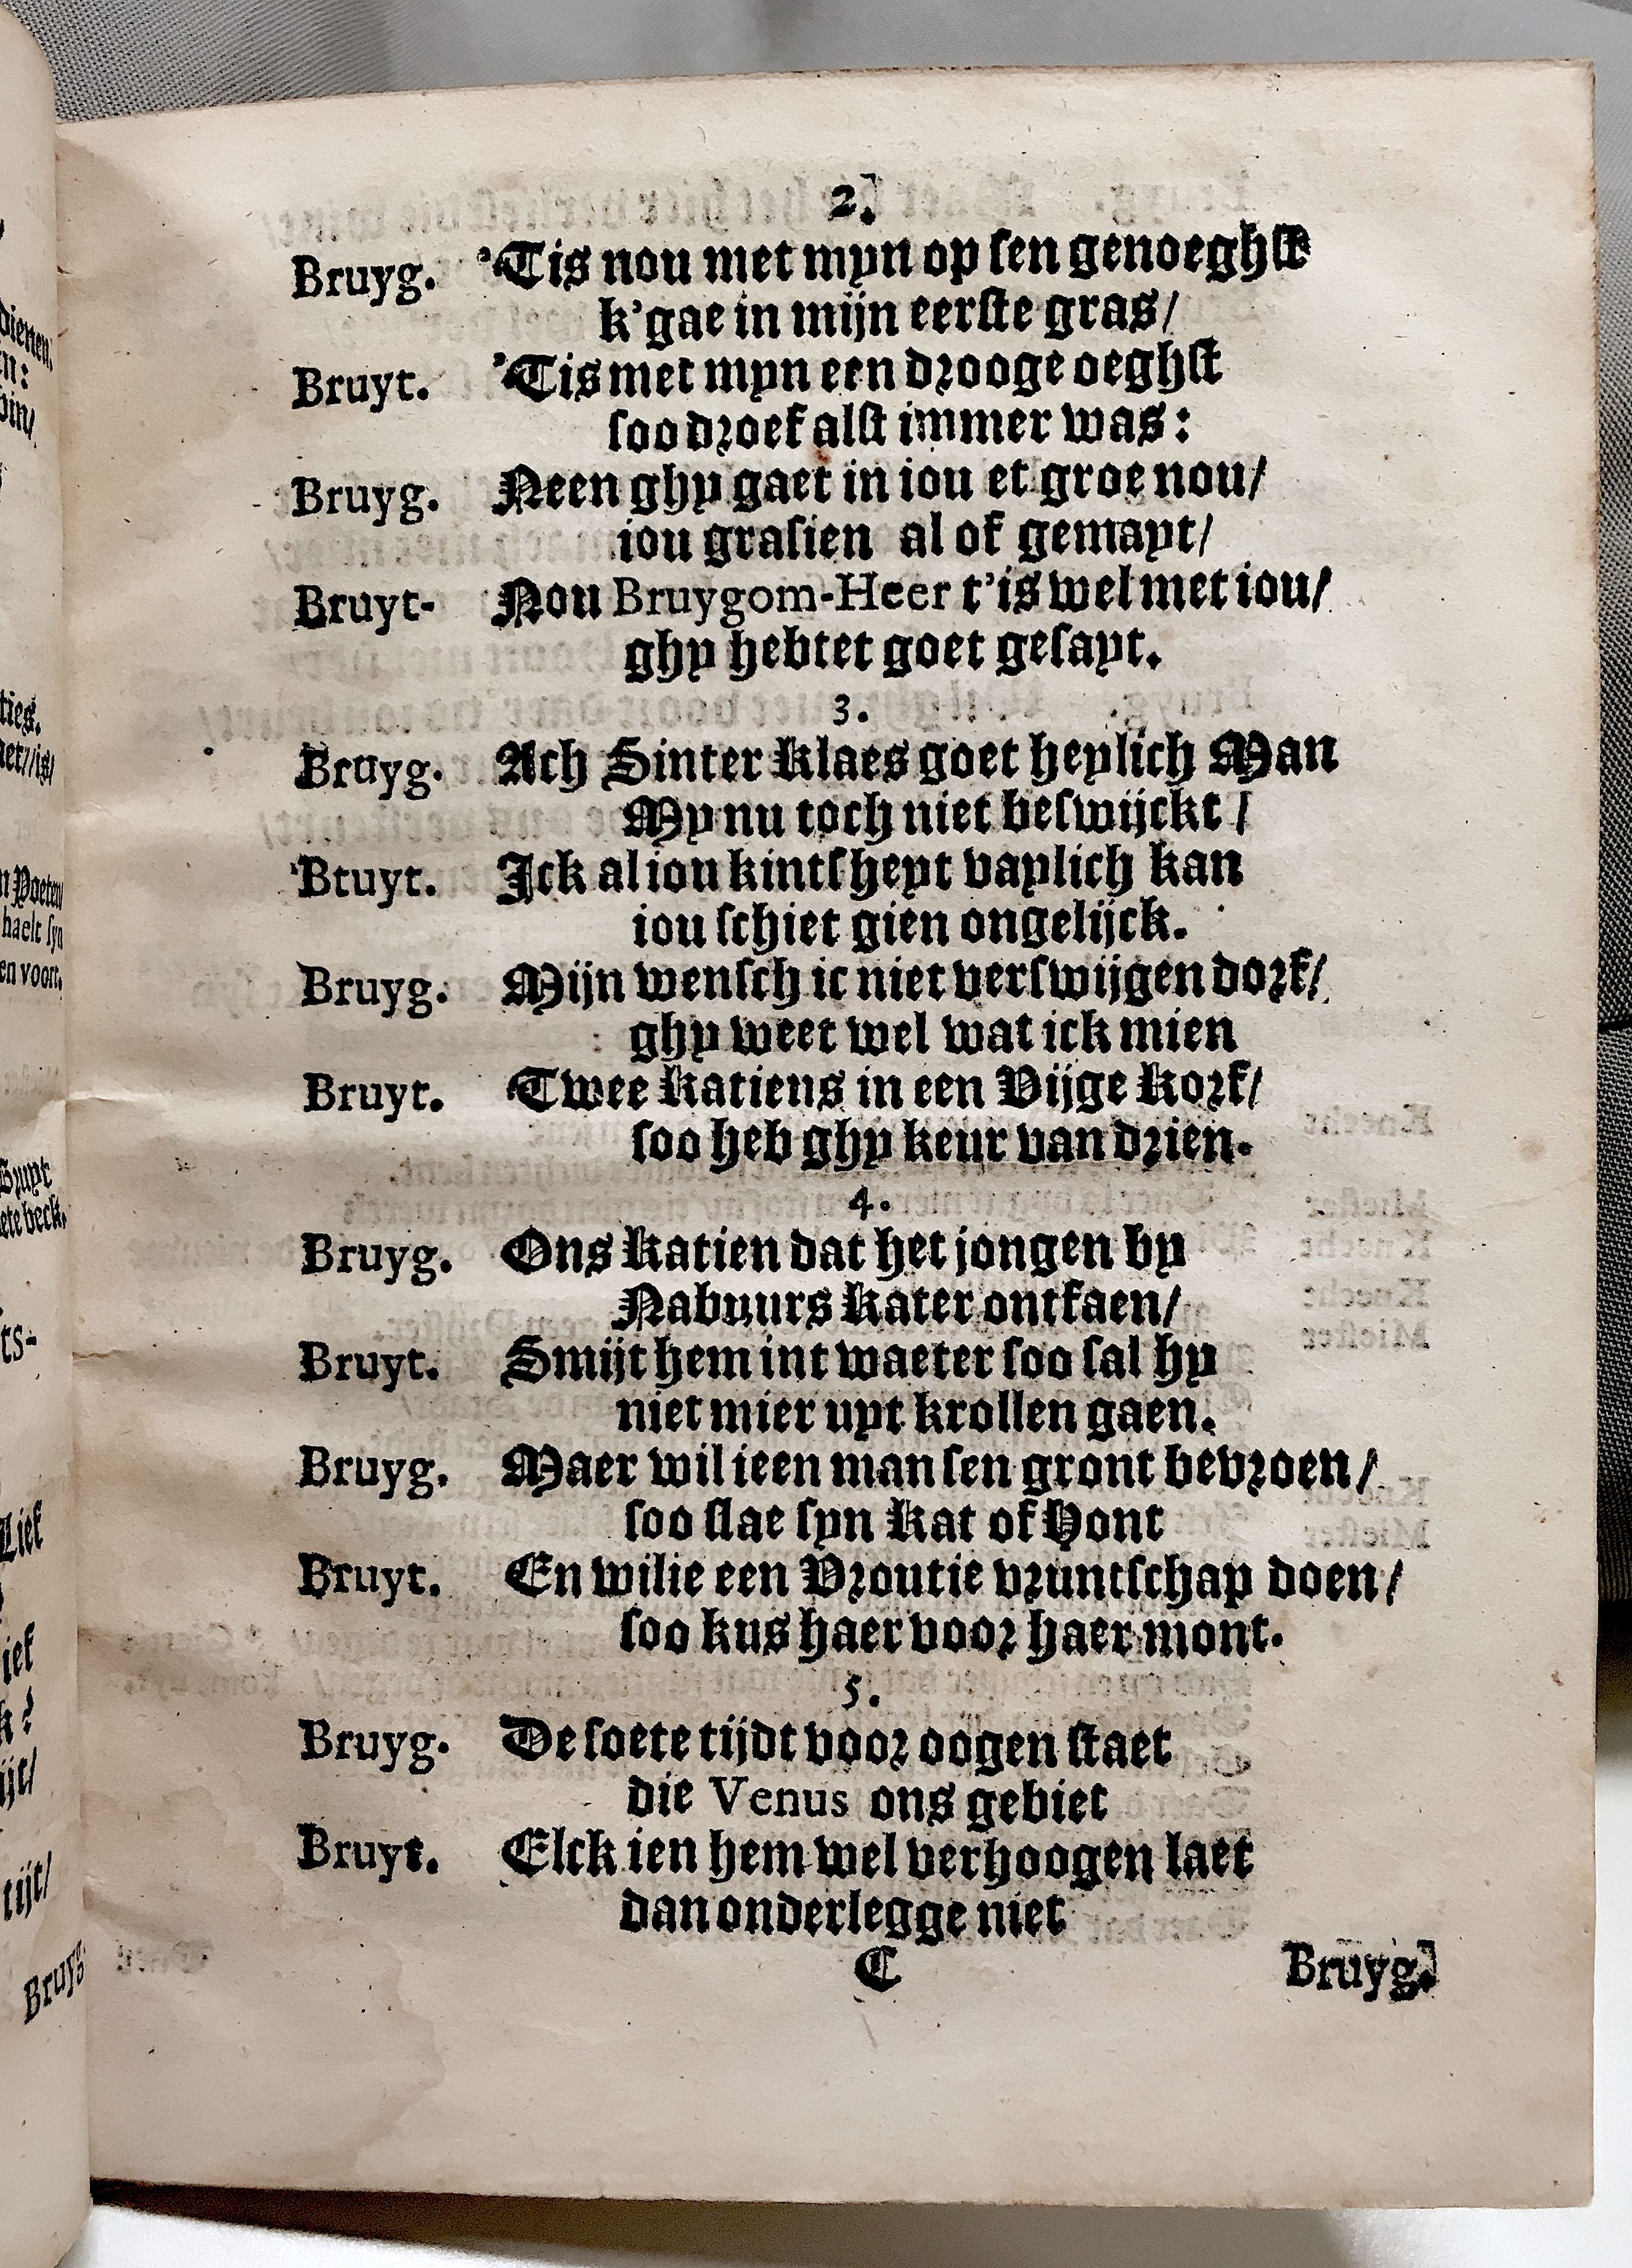 2.
Bruyg. 'Tis nou met myn op sen genoeghst
k'gae in mijn eerste gras/
Bruyt. 'Tis met myn een drooge oeghst
soo droef alst immer was:
Bruyg. Neen ghy gaet in iou et groe nou/
iou grasien al of gemayt/
Bruyt- Nou Bruygom-Heer t'is wel met iou/
ghy hebtet goet gesayt.
3.
Bruyg. Ach Sinter Klaes goet heylich Man
My nu toch niet beswijckt /
Btuyt. Ick al iou kintsheyt vaylich kan
iou schiet gien ongelijck.
Bruyg. Mijn wensch ic niet verswijgen dorf/
ghy weet wel wat ick mien
Bruyt. Twee Katiens in een Vijge Korf/
soo heb ghy keur van drien.
4.
Bruyg. Ons Katien dat het jongen by
Nabuurs Kater ontfaen/
Bruyt. Smijt hem int waeter soo sal hy
niet mier uyt krollen gaen.
Bruyg. Maer wil ieen man sen gront bevroen/
soo slae syn Kat of Hont
Bruyt. En wilie een Vroutie vruntschap doen/
soo kus haer voor haer mont.
5.
Bruyg. De soete tijdt voor oogen staet
die Venus ons gebiet
Bruyt. Elck ien hem wel verhoogen laet
dan onderlegge niet
C Bruyg.